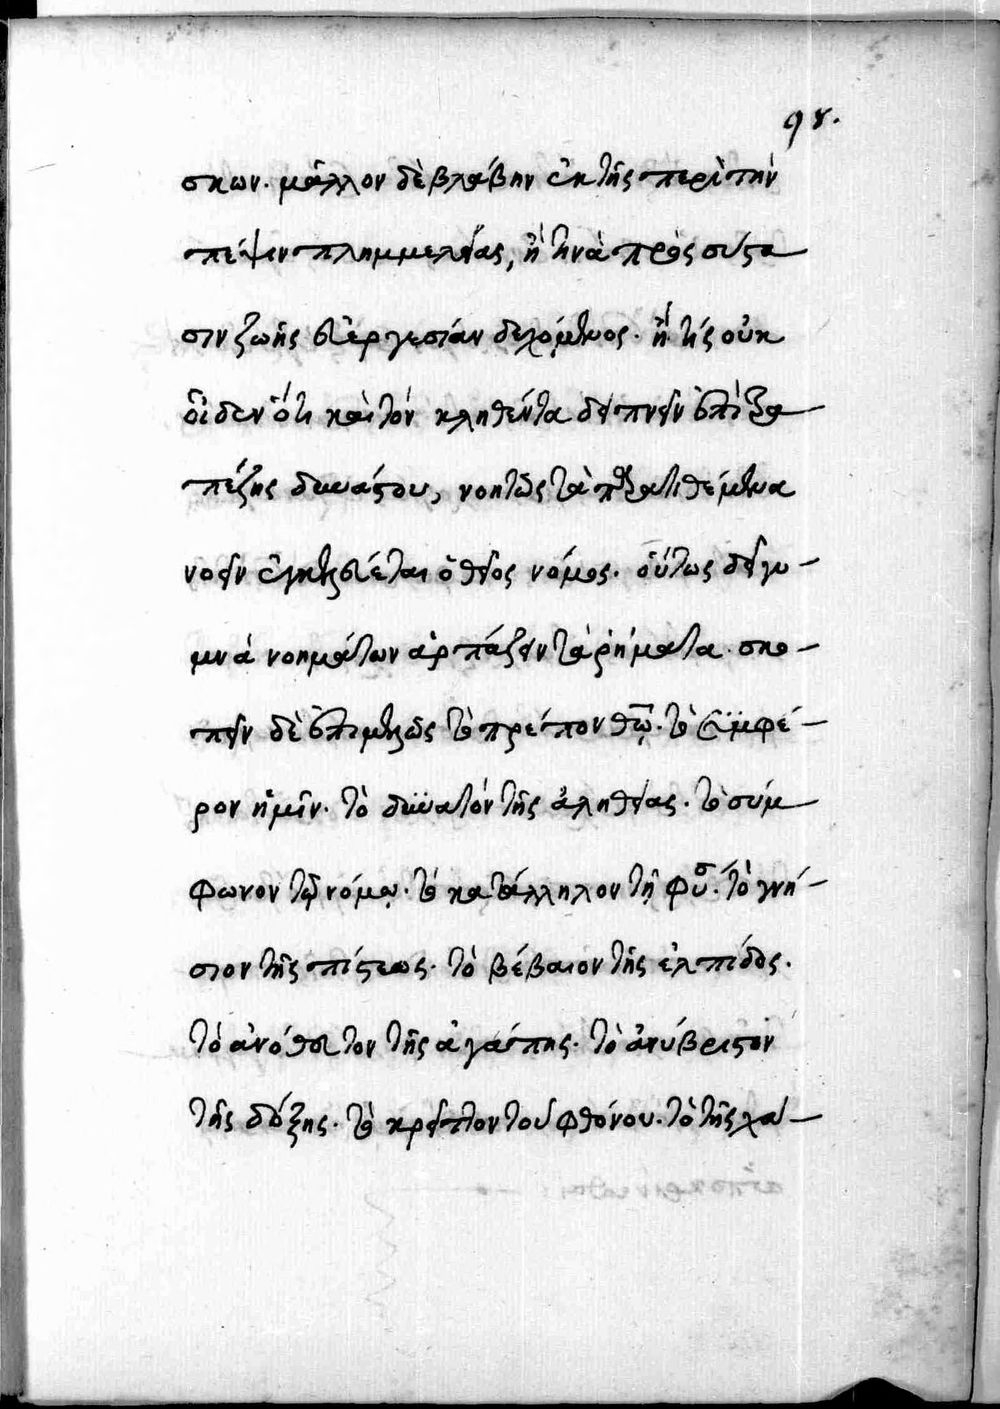 98.
σκων. μᾶλλον δὲ βλάβην ἐκ τῆς περὶ τὴν
πέψιν πλημμελείας, ἢ τινὰ πρὸς σύστα
σιν ζωῆς εὐεργεσίαν δεχόμενος. ἢ τίς οὐκ
οἶδεν ὅτι καὶ τὸν κληθέντα δειπνεῖν ἐπὶ τρα
πέζης δυνάστου, νοητῶς τὰ παρατιθέμενα
νοεῖν ἐγκελεύεται ὁ θεῖος νόμος. οὕτως δεῖ γυ
μνὰ νοημάτων ἁρπάζειν τὰ ῥήματα. σκο
πεῖν δὲ ἐπιμελῶς τὸ πρέπον θῶ. τὸ συμφέ
ρον ἡμῖν. τὸ δυνατὸν τῆς ἀληθείας. τὸ σύμ
φωνον τῷ νόμῳ. τὸ κατάλληλον τῇ φύσει. τὸ γνή
σιον τῆς πίστεως. τὸ βέβαιον τῆς ἐλπίδος.
τὸ ἀνόθευτον τῆς ἀγάπης. τὸ ἀνύβριστον
τῆς δόξης. τὸ κρεῖττον τοῦ φθόνου. τὸ τῆς χά